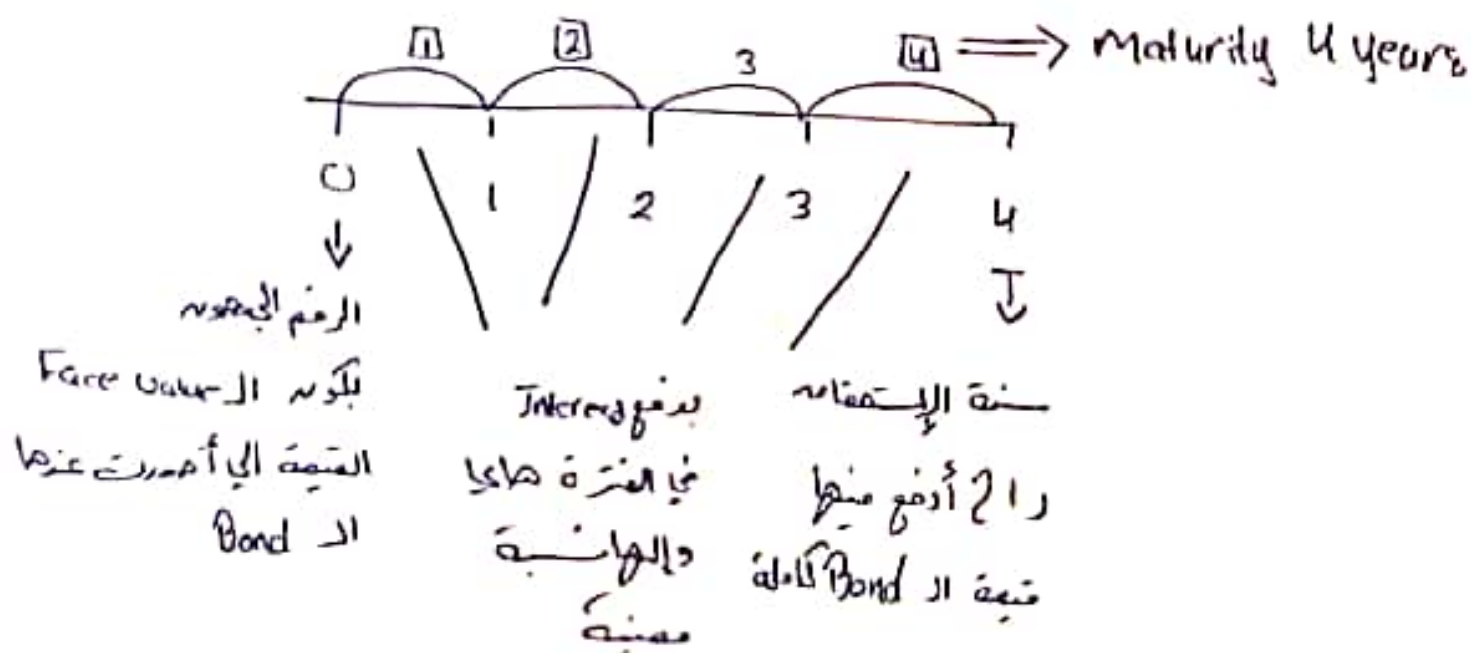 1 2 3 4 ⟹ Maturity 4 years
0 1 2 3 4
T
الرقم
بكون ال Face value
القيمة الي أصدرت عندها
ال Bond
بدفع Interest
في الفترة هاي
وإلها نسبة
معينة
سنة الإستحقاق
راح أدفع فيها
قيمة ال Bond كاملة